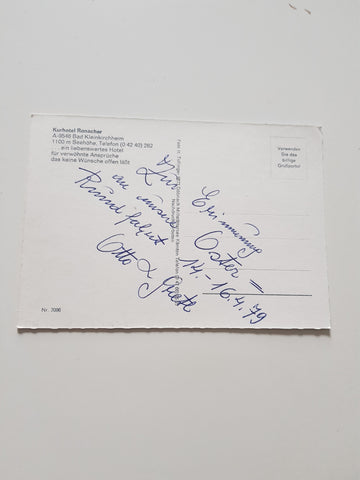 Kurhotel Ronacher
A-9546 Bad Kleinkirchheim
1100 m Seehöhe, Telefon (0 42 40) 282
... ein liebenswertes Hotel
für verwöhnte Ansprüche
das keine Wünsche offen läßt
Verwenden
Sie das
billige
Zur Erinnerung
an unsere Oster=
Rundfahrt 14.-16.4.79
Otto & Grete
Nr. 7096